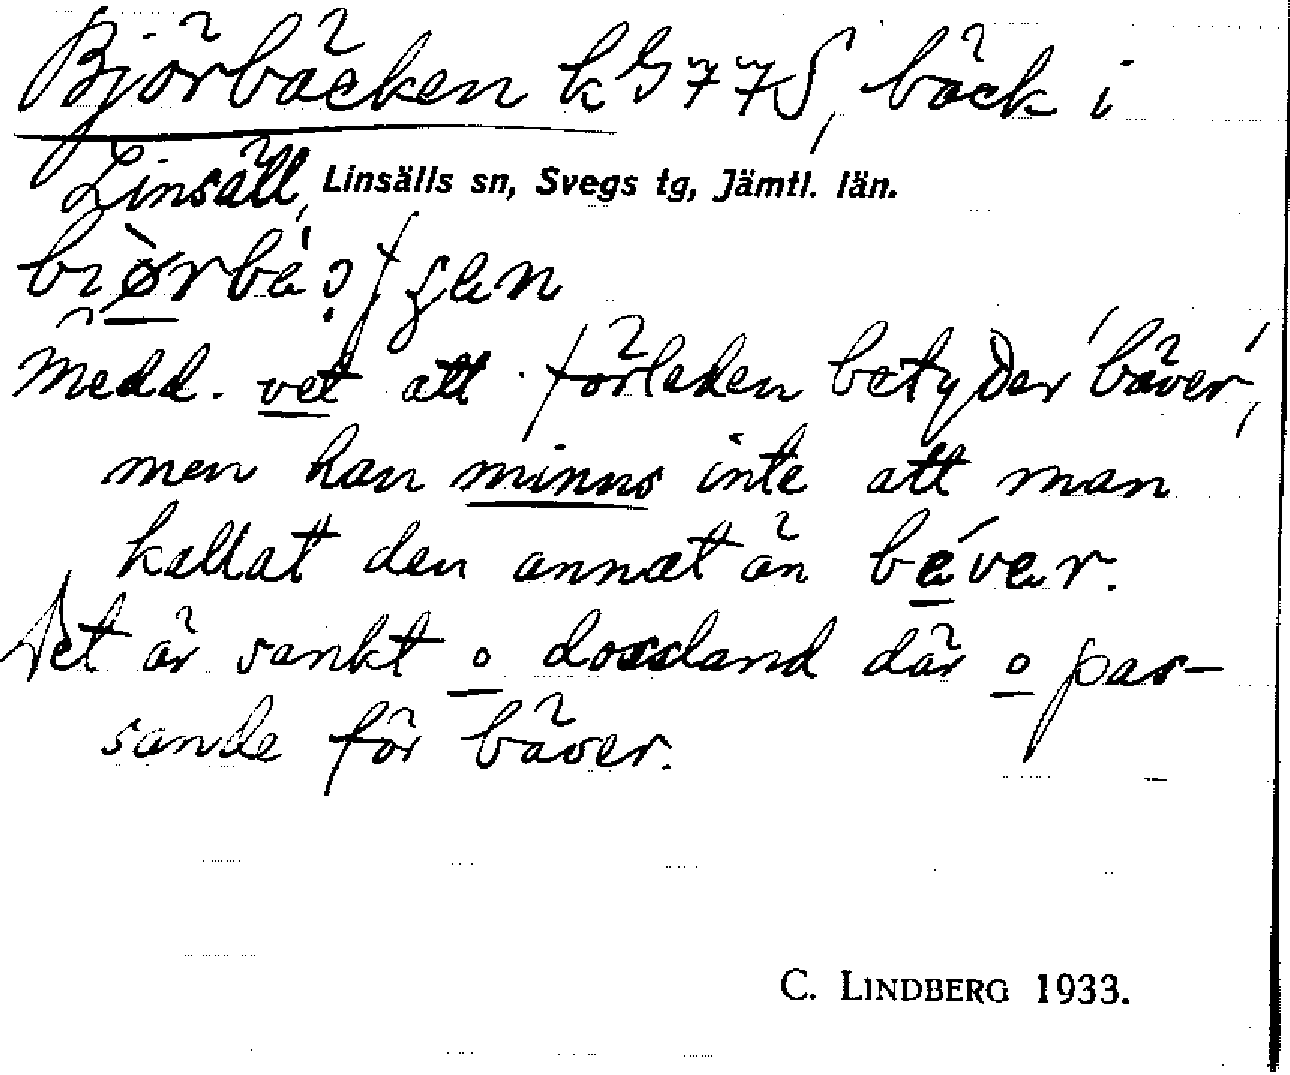 Björbäcken kG 77S, bäck i
Linsäll, Linsälls sn, Svegs tg, Jämtl. län.
Medd. vet att förleden betyder 'bäver',
men han minns inte att man
kallat den annat än béver.
Det är sankt o dossland där o pas-
sande för bäver.
C. LINDBERG 1933.